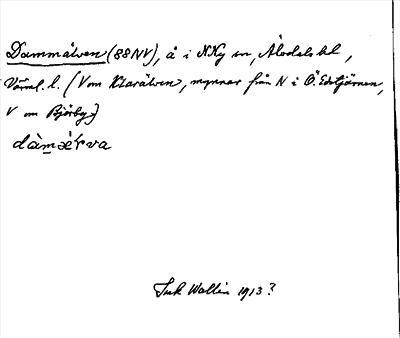 Dammälven (88NV), å i N Ny sn, Älvdals hd,
Värml. l. (Vm Klarälven, mynnar från N i Ö. Edstjärnen,
V om Björby)
dàmǽrva
Wallin 1913?